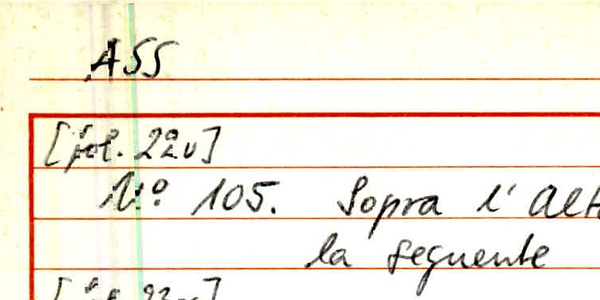 ASS
[fol. 22v]
Nº 105. Sopra l'
la seguente